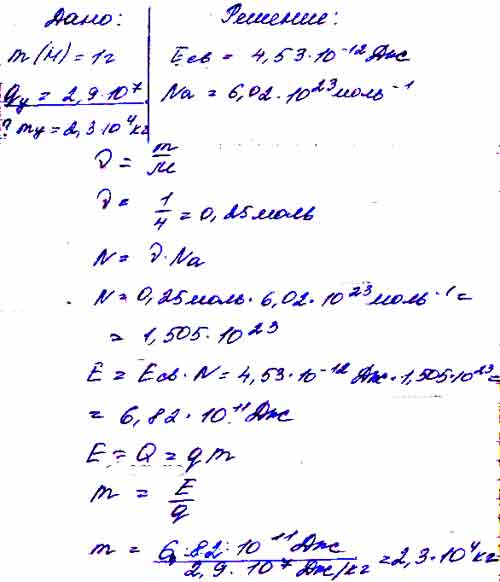 Дано:
m(H) = 1г
qу = 2,9·10⁷
? mу = 2,3·10⁴ кг
Решение:
Eсв = 4,53·10⁻¹² Дж
Na = 6,02·10²³ моль⁻¹
ν = m/M
ν = 1/4 = 0,25 моль
N = ν·Na
N = 0,25 моль · 6,02·10²³ моль⁻¹ =
= 1,505·10²³
E = Eсв·N = 4,53·10⁻¹² Дж·1,505·10²³ =
= 6,82·10¹¹ Дж
E = Q = qm
m = E/q
m = 6,82·10¹¹ Дж / 2,9·10⁷ Дж/кг = 2,3·10⁴ кг